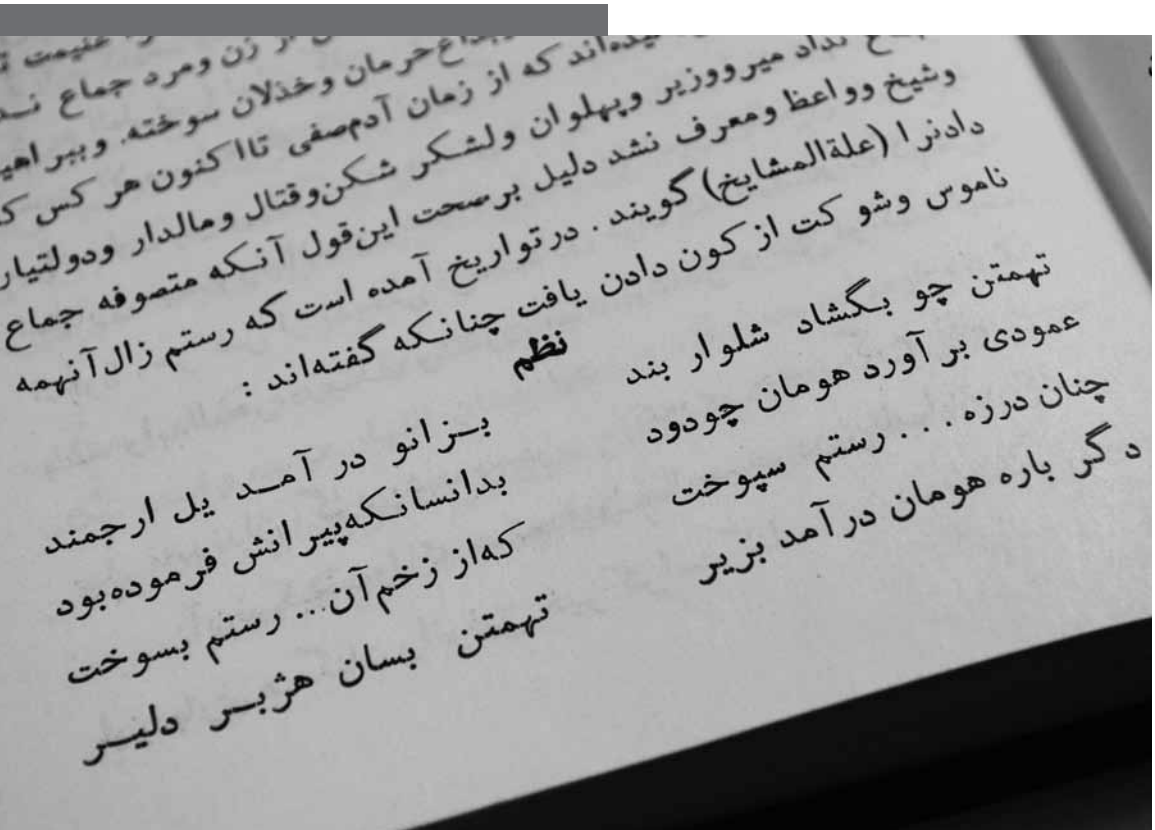 غنیمت
از زن ومرد جماع
بداغ حرمان وخذلان سوخته. وببراهین
که از زمان آدم‌صفی تااکنون هر کس که
نداد میر ووزیر وپهلوان ولشکر شکن‌وقتال ومالدار ودولتیار
وشیخ وواعظ ومعرف نشد دلیل برصحت این‌قول آنکه متصوفه جماع
دادنرا (علةالمشایخ) گویند . درتواریخ آمده است که رستم زال آنهمه
ناموس وشو کت از کون دادن یافت چنانکه گفته‌اند :
نظم
تهمتن چو بگشاد شلوار بند بزانو در آمد یل ارجمند
عمودی بر آورد هومان چودود بدانسانکه‌پیرانش فرموده‌بود
چنان درزه . . . رستم سپوخت که‌از زخم‌آن... رستم بسوخت
دگر باره هومان درآمد بزیر تهمتن بسان هژبر دلیر